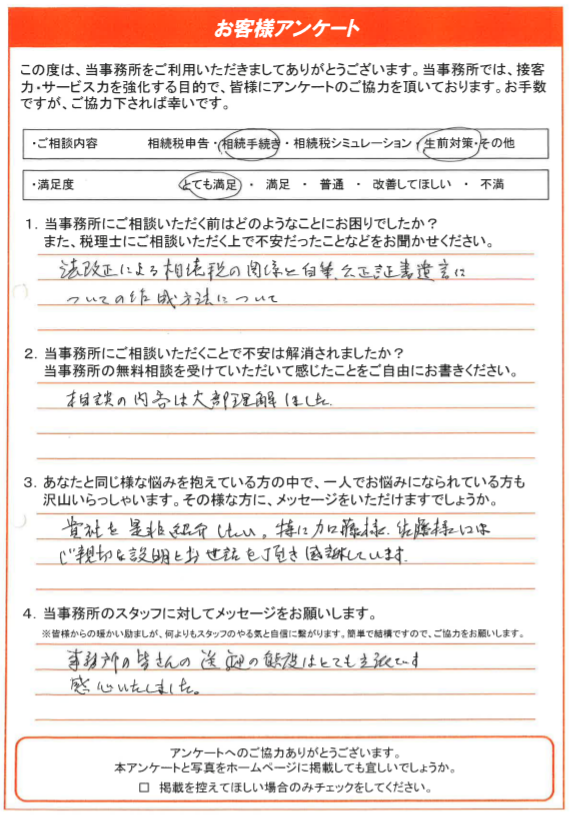 お客様アンケート
この度は、当事務所をご利用いただきましてありがとうございます。当事務所では、接客
力・サービス力を強化する目的で、皆様にアンケートのご協力を頂いております。お手数
ですが、ご協力下されば幸いです。
・ご相談内容 相続税申告・相続手続き・相続税シミュレーション・生前対策・その他
・満足度 とても満足 ・ 満足 ・ 普通 ・ 改善してほしい ・ 不満
1. 当事務所にご相談いただく前はどのようなことにお困りでしたか？
また、税理士にご相談いただく上で不安だったことなどをお聞かせください。
法改正による相続税の関係と自筆、公正証書遺言に
ついての作成方法について
2. 当事務所にご相談いただくことで不安は解消されましたか？
当事務所の無料相談を受けていただいて感じたことをご自由にお書きください。
相談の内容は大部理解しました。
3. あなたと同じ様な悩みを抱えている方の中で、一人でお悩みになられている方も
沢山いらっしゃいます。その様な方に、メッセージをいただけますでしょうか。
貴社を是非紹介したい。特に加藤様、佐藤様には
ご親切な説明とお世話を頂き感謝しています。
4. 当事務所のスタッフに対してメッセージをお願いします。
※皆様からの暖かい励ましが、何よりもスタッフのやる気と自信に繋がります。簡単で結構ですので、ご協力をお願いします。
事務所の皆さんの送迎の態度はとても立派です
感心いたしました。
アンケートへのご協力ありがとうございます。
本アンケートと写真をホームページに掲載しても宜しいでしょうか。
□ 掲載を控えてほしい場合のみチェックをしてください。